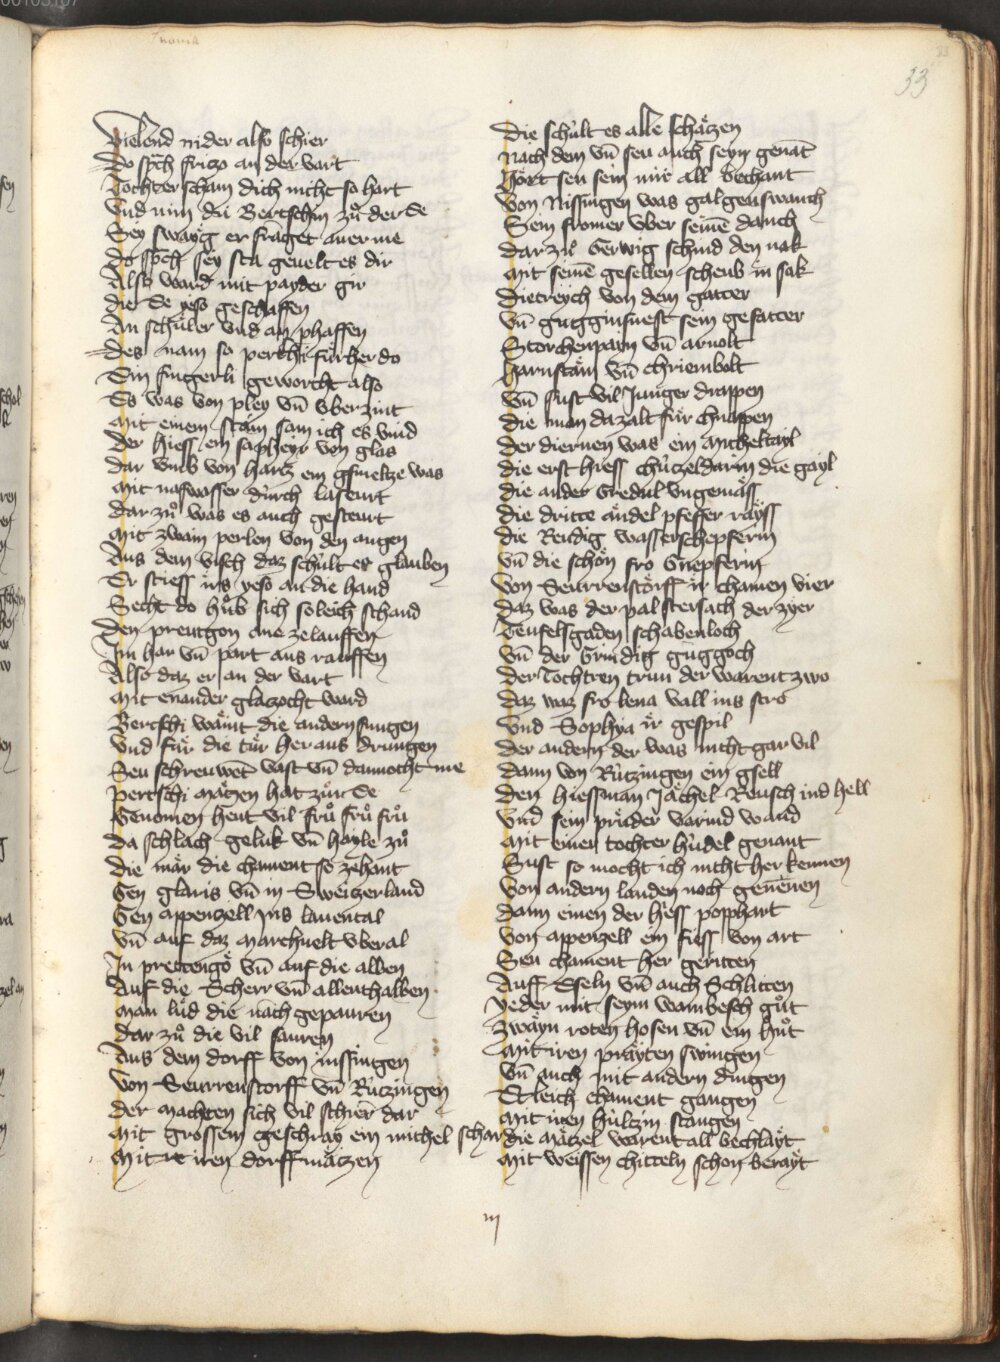 33
Vielend nider also schier
Do sp̄ch fritzo an der vart
Tochter scham dich nicht so hart
Vnd nim dü Bertschin zů der de
Sey swayg er fraget auer me
Do sp̄ch sey sta geuelt es dir
Also ward mit payder gir
die De yeso geschaffen
An schůler vnd an phaffen
Des nam so pertschi fürher do
Ein fingerli geworcht also
Es was von pley vn̄ vberzint
Mit einem stain sam ich es vind
Der hiess ein sapheyr von glas
Dar vmb von hartz ein gsmeltze was
Mit nafwasser durch lasurt
Dar zů was es auch gesteurt
Mit zwain perlen von den augen
Aus dem visch daz schült er glauben
Er stiess irs yeso an die hand
Secht do hůb sich soleich schand
Den preutgon ane zelauffen
Im har vn̄ part aus rauffen
Also daz er an der vart
Mit enander glazocht ward
Bertschi waint die andern sungen
Vnd für die tür her aus drungen
Seu schreuwēt vast vn̄ dannocht me
Pertschi mätzen hat zůr de
Genomen hewt vil frů frů frů
Da schlach geluk vn̄ hayle zů
Die mär die chament so zehant
Gen glaris vn̄ in Sweitzerland
Gen appenzell ins lauental
Vn̄ auf daz marchuelt vberal
In prettengö vn̄ auf die alben
Auf die Scherr vn̄ allenthalben
Man lůd die nachgepauren
Dar zů die vil sauren
Aus dem dorff von nissingen
Von Seurrenstorff vn̄ Rützingen
Der machten sich vil schier dar
Mit grossem geschray ein michel schar
Mit iren dorffmätzen
Die schült es alle schätzen
Nach dem vn̄ seu auch seyn genāt
Hört seu sein mir all bechant
Von Nissingen was galgenswanch
Sein fromer vber seinē danch
Dar zů Gerwig schind den nak
Mit seinē gesellen scheub in sak
Dietreych von dem gatter
Vn̄ gugginsnest sein gefatter
Storchenpayn vn̄ arnolt
Harnstain vn̄ chriembolt
Vn̄ sust vil Junger drappen
Die man dazalt für chnappen
Der diernen was ein micheltayl
Die erst hiess chützeldarm die gayl
Die ander Gredul vngemäss
Die dritte ändel pfeffer räyss
Die Reudig wasserschepferin
Vn̄ die schön fro Gnepferin
Von Seurrenstorff ir chamen vier
Daz was der palstersach der zyer
Teufelsgaden schabenloch
Vn̄ der Grindig guggoch
Der Tochtren trun der warent zwo
Daz waz fro lena vall ins stro
Vnd Sophya ir gespil
Der andern der was nicht gar vil
Dann von Rützingen ein gsell
Den hiessman Jächel Reusch ind hell
Vnd sein prüder varind wand
Mit einer tochter hüdel genant
Sust so mocht ich nicht her kennen
Von andern landen noch genenen
Dann einen der hiess popphart
Von appenzell ein fiess von art
Seu chament her geritten
Auff Eseln vn̄ auch Schlitten
Yeder mit seym wambesch gůt
Zwayn roten hosen vn̄ ein hůt
Mit iren präyten swingen
Vn̄ auch mit andern dingen
Etleich chament gangen
Mit iren hültzin stangen
Die mätzel warent all bechläyt
Mit weissen chitteln schon beräyt